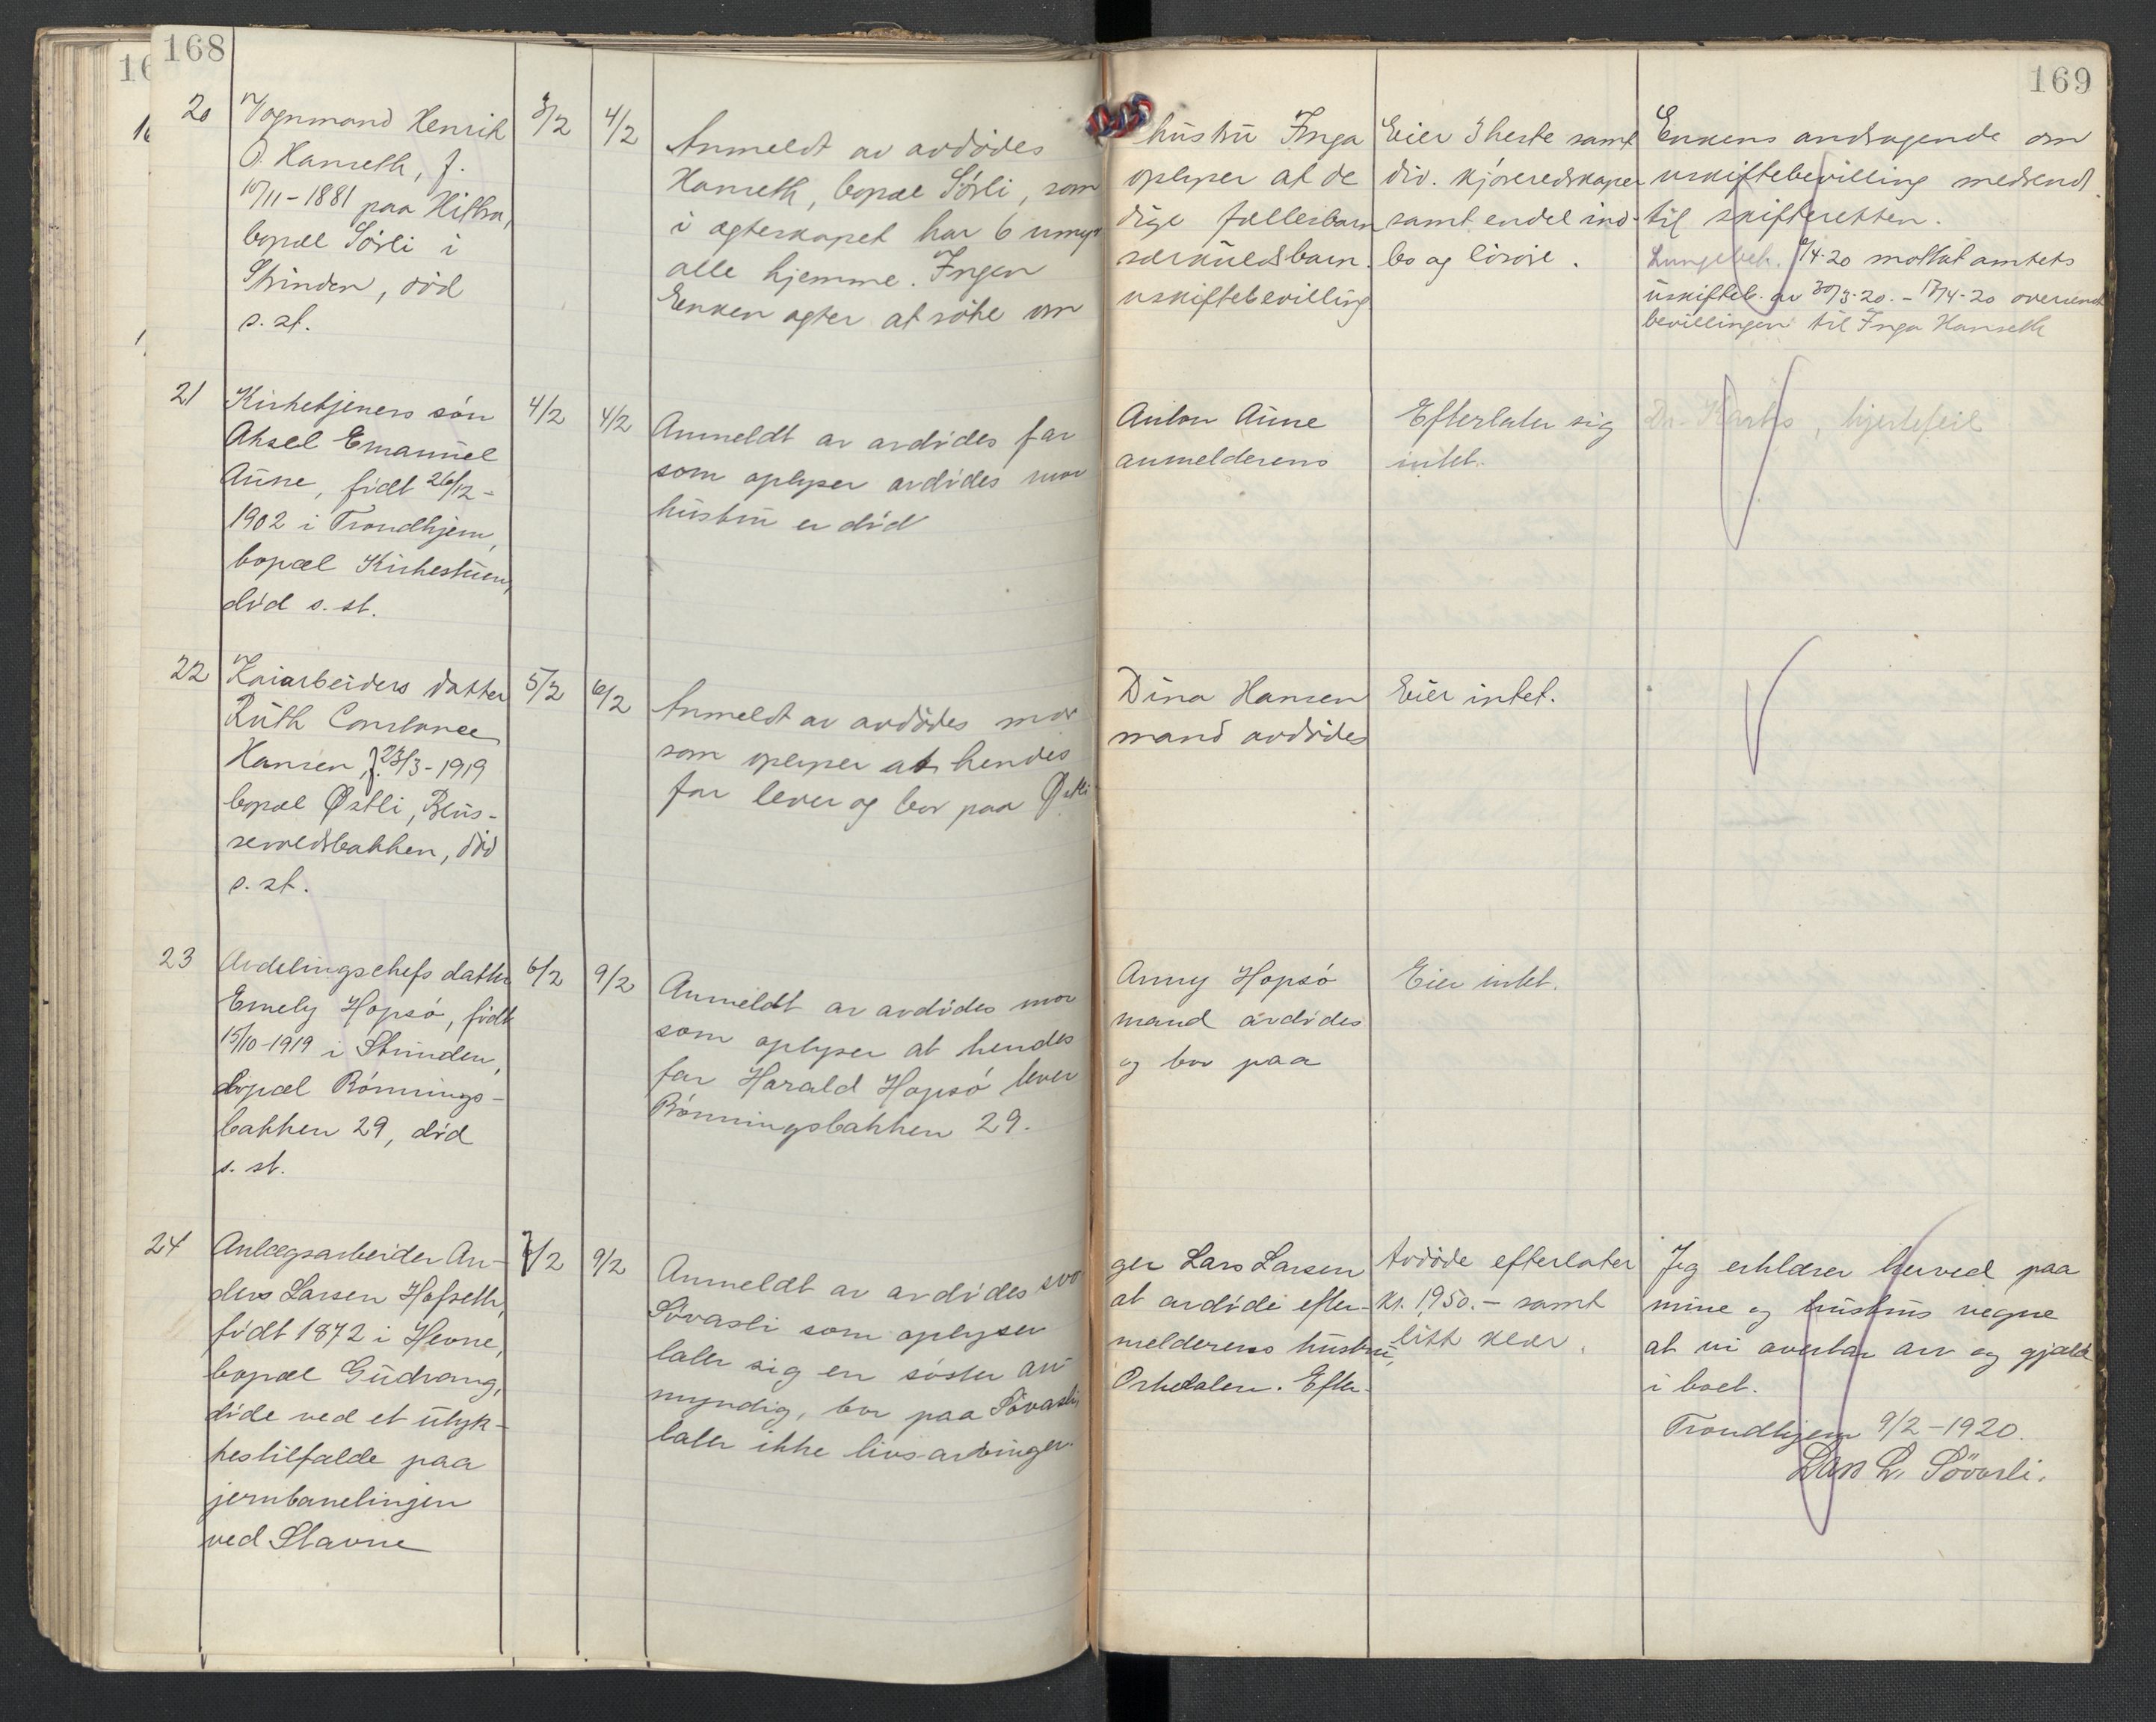 168
169
20
Vognmand Henrik
O. Hanseth, f.
10/11-1881 paa Hitra,
bopæl Sörli i
Strinden, död
s. st.
3/2
4/2
Anmeldt av avdödes hustru Inga
Hanseth, bopæl Sörli, som oplyser at de
i egteskapet har 6 umyndige fællesbarn
alle hjemme. Ingen særkuldsbarn.
Enken agter at söke om uskiftebevilling
Eier 3 heste samt
div. kjöreredskaper
samt endel ind-
bo og lösöre.
Enkens andragende om
uskiftebevilling medsend
til skifteretten.
Lungebet. 9/4-20 mottat amtets
uskifteb. av 30/3-20. - 17/4-20 oversendt
bevillingen til Inga Hanseth
21
Kirketjeners sön
Aksel Emanuel
Aune, födt 26/12-
1902 i Trondhjem,
bopæl Kirkestuen,
död s. st.
4/2
4/2
Anmeldt av avdödes far Anton Aune
som oplyser avdödes mor anmelderens
hustru er död
Efterlater sig
intet.
Dr. , hjertefeil
22
Kaiarbeiders datter
Ruth Constance
Hansen, f. 23/3-1919
bopæl Østli, Bus-
sevoldsbakken, död
s. st.
5/2
6/2
Anmeldt av avdödes mor Dina Hansen
som oplyser at hendes mand avdödes
far lever og bor paa Østli
Eier intet.
23
Avdelingschefs datter
Emely Hopsö, födt
15/10-1919 i Strinden,
bopæl Rönnings-
bakken 29, död
s. st.
6/2
9/2
Anmeldt av avdödes mor Anny Hopsö
som oplyser at hendes mand avdödes
far Harald Hopsö lever og bor paa
Rönningsbakken 29.
Eier intet.
24
Anlægsarbeider An-
ders Larsen Hofseth,
födt 1872 i Hevne,
bopæl Gudrang,
döde ved et ulyk-
kestilfælde paa
jernbanelinjen
ved Stavne
7/2
9/2
Anmeldt av avdödes svoger Lars Larsen
Sövasli som oplyser at avdöde efter-
later sig en söster anmelderens hustru,
myndig, bor paa Sövasli, Orkedalen. Efter-
later ikke livsarvinger.
Avdöde efterlater
kr. 1,950.- samt
litt klær.
Jeg erklærer herved paa
mine og hustrus vegne
at vi overtar arv og gjæld
i boet.
Trondhjem 9/2-1920.
Lars L. Sövasli.